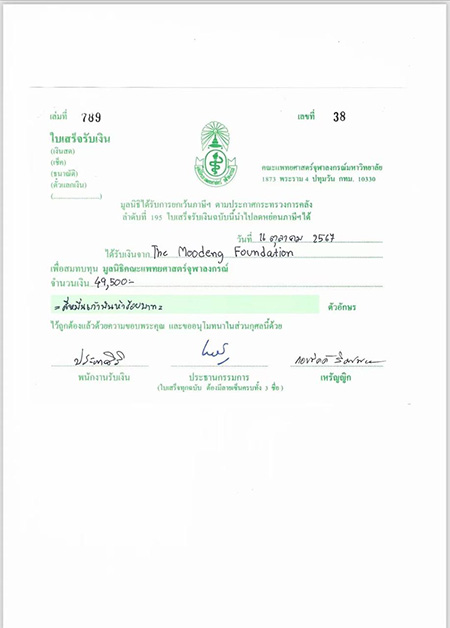 เล่มที่ 789 เลขที่ 38
ใบเสร็จรับเงิน
(เงินสด)
(เช็ค)
(ธนาณัติ)
(ตั๋วแลกเงิน)
(....................)
คณะแพทยศาสตร์จุฬาลงกรณ์มหาวิทยาลัย
1873 พระราม 4 ปทุมวัน กทม. 10330
มูลนิธิได้รับการยกเว้นภาษีฯ ตามประกาศกระทรวงการคลัง
ลำดับที่ 195 ใบเสร็จรับเงินฉบับนี้นำไปลดหย่อนภาษีฯได้
วันที่ 16 ตุลาคม 2567
ได้รับเงินจาก The Moodeng Foundation
เพื่อสมทบทุน มูลนิธิคณะแพทยศาสตร์จุฬาลงกรณ์
จำนวนเงิน 49,500.-
= สี่หมื่นเก้าพันห้าร้อยบาท = ตัวอักษร
ไว้ถูกต้องแล้วด้วยความขอบพระคุณ และขออนุโมทนาในส่วนกุศลนี้ด้วย
พนักงานรับเงิน ประธานกรรมการ เหรัญญิก
(ใบเสร็จทุกฉบับ ต้องมีลายเซ็นครบทั้ง 3 ชื่อ)